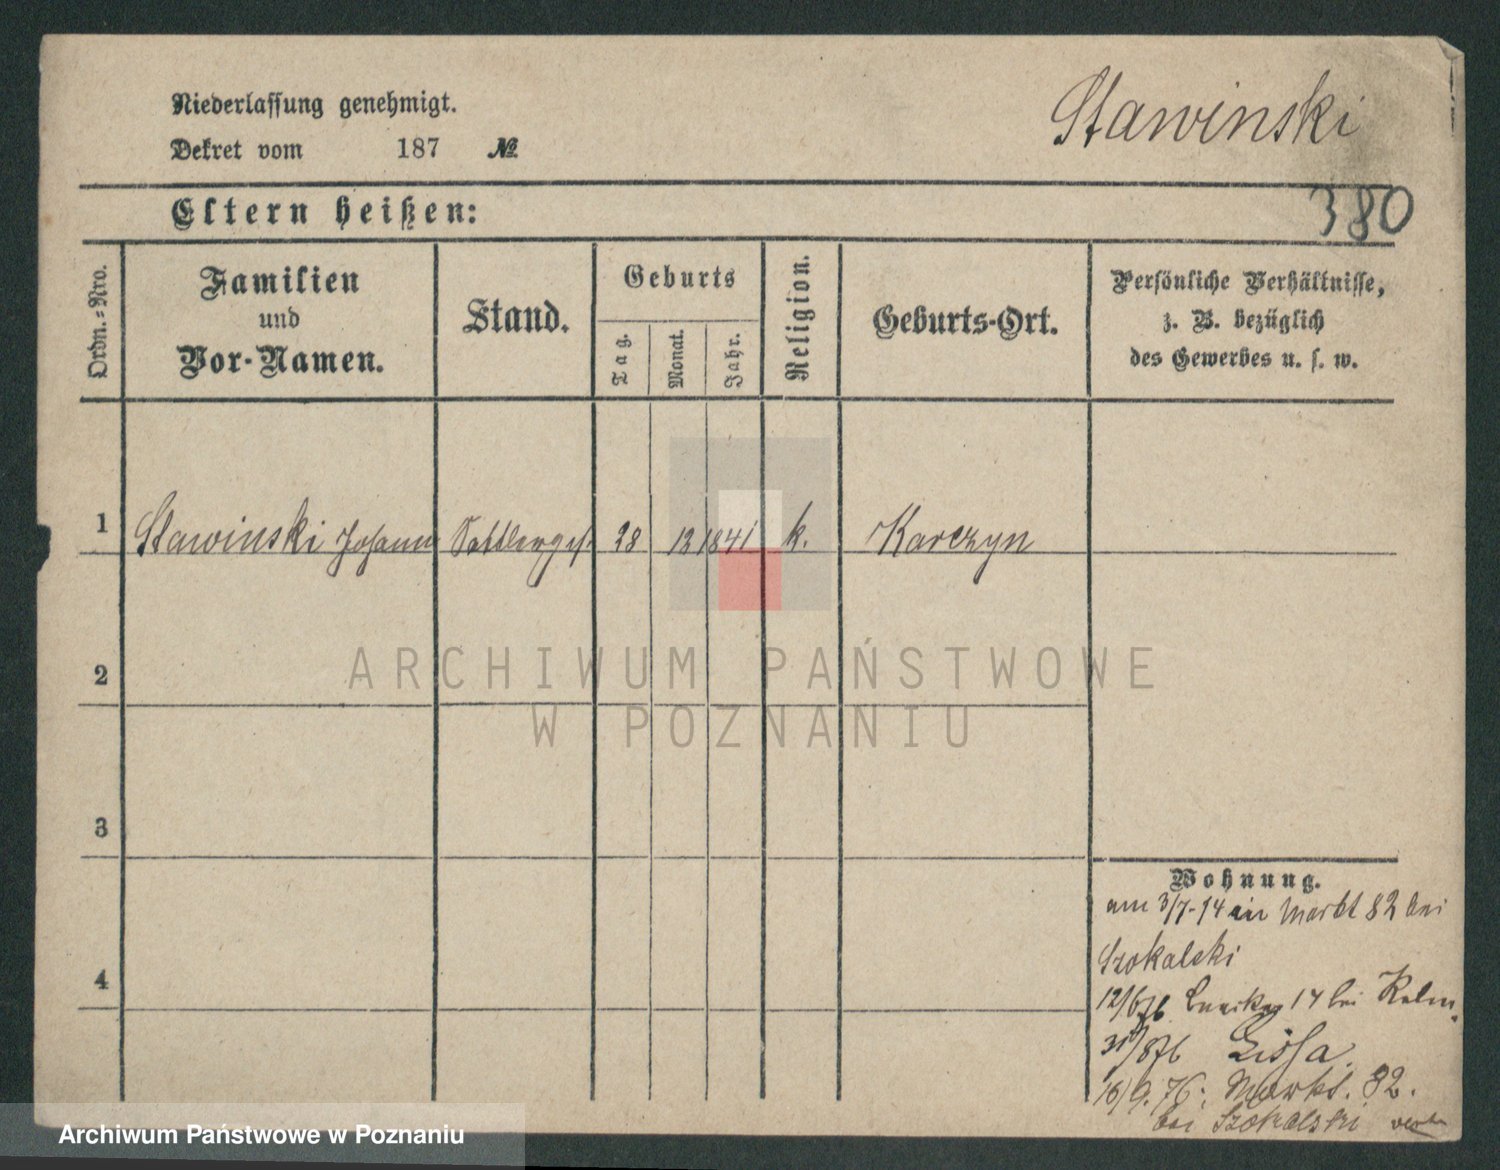 Niederlassung genehmigt.
Stawinski
Dekret vom 187 №
Eltern heißen:
380
Ordn.-Nro.
Familien
und
Vor-Namen.
Stand.
Geburts
Tag.
Monat.
Jahr.
Religion.
Geburts-Ort.
Persönliche Verhältnisse,
z. B. bezüglich
des Gewerbes u. s. w.
1 Stawinski Johann Sattlerges. 28 12 1841 k. Karczyn
2
3
4
Wohnung.
am 3/7-74 in Markt 82 bei
Szokalski
12/6 76 14 bei
31/8 76 Lissa.
16/9. 76. Markt. 82.
bei Szokalski
ARCHIWUM PAŃSTWOWE
W POZNANIU
Archiwum Państwowe w Poznaniu